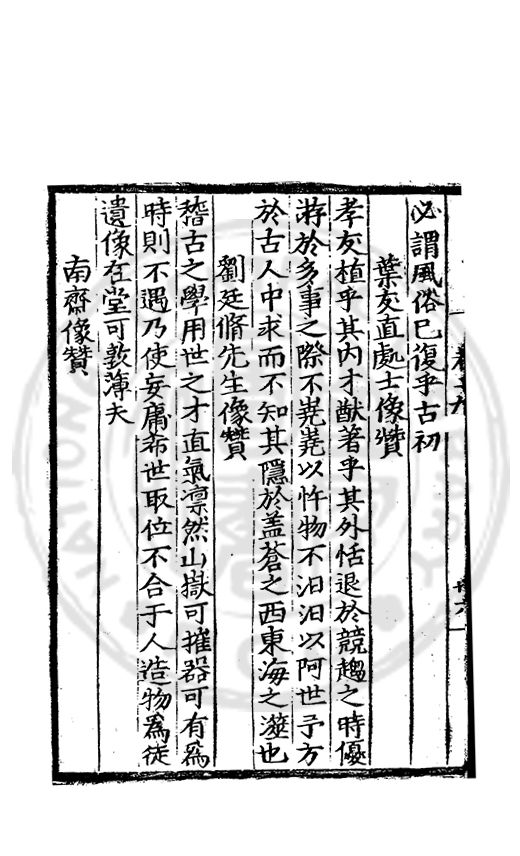 必謂風俗已復乎古初
葉友直處士像贊
孝友植乎其内才猷著乎其外恬退於競趨之時優
游於多事之際不嶤嶤以忤物不汩汩以阿世予方
於古人中求而不知其隱於盖蒼之西東海之澨也
劉廷脩先生像贊
稽古之學用世之才直氣凛然山嶽可摧器可有爲
時則不遇乃使妄庸希世取位不合于人造物爲徒
遺像在堂可敦薄夫
南齋像贊